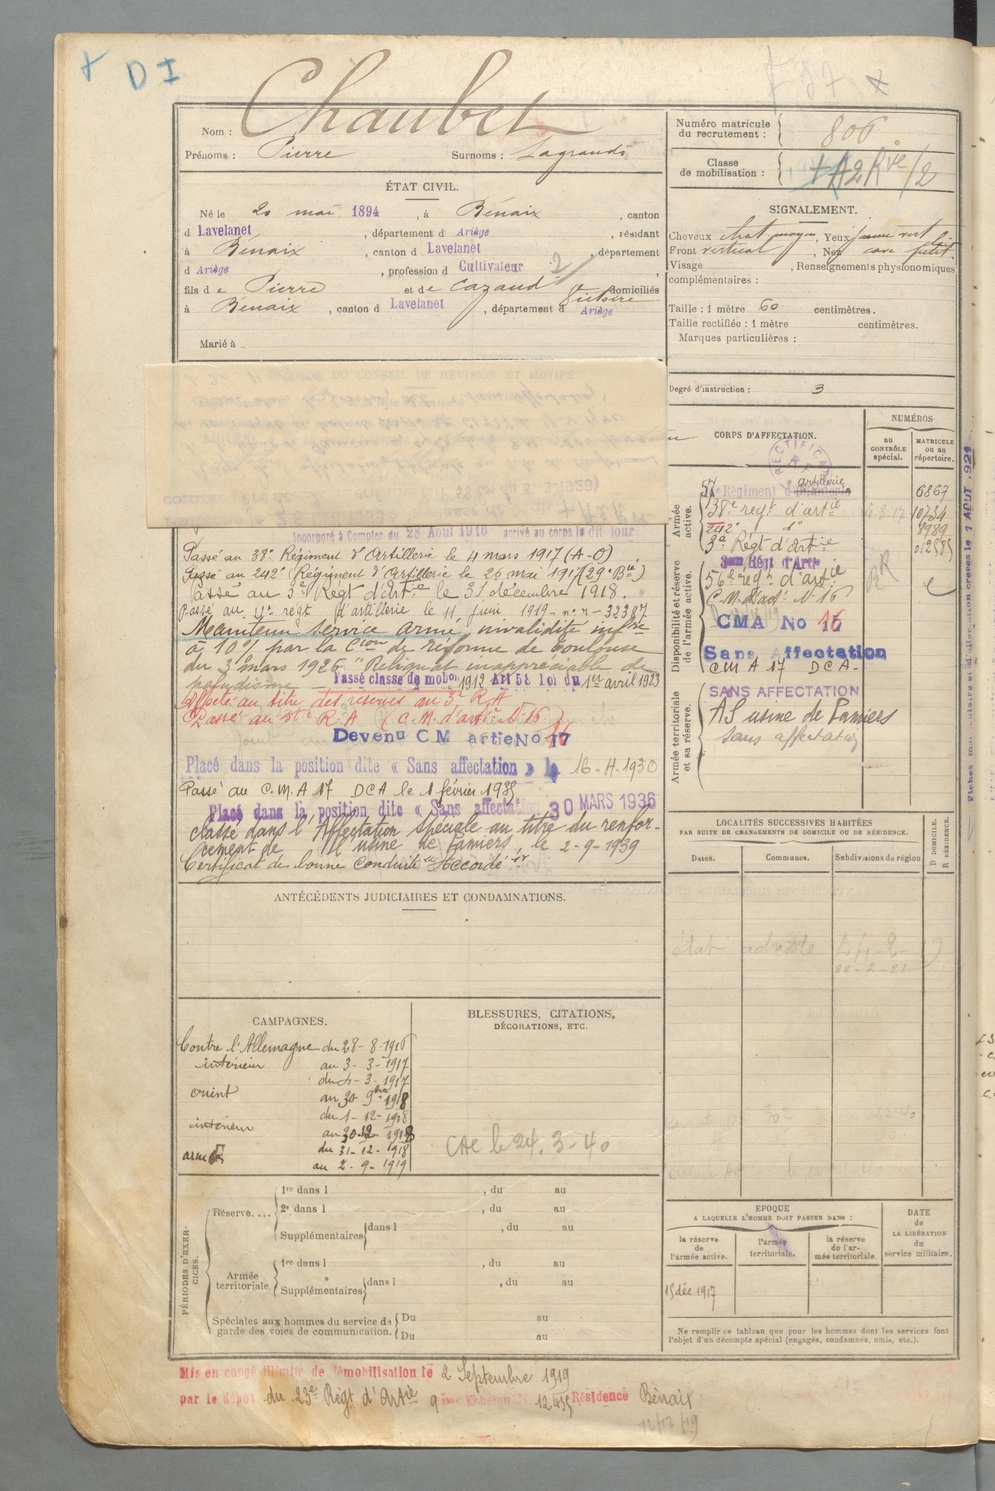 D I
Nom : Chaubet
Prénoms : Pierre Surnoms : Lagrande
Numéro matricule du recrutement : 806
Classe de mobilisation : A2 Rve/2
ÉTAT CIVIL.
Né le 20 mai 1894, à Bénaix, canton
d Lavelanet, département d Ariège, résidant
à Bénaix, canton d Lavelanet, département
d Ariège, profession d Cultivateur 2
fils d e Pierre et d e Cazaud Victoire domiciliés
à Bénaix, canton d Lavelanet, département d Ariège
Marié à
SIGNALEMENT.
Cheveux chat. moyen, Yeux jaune vert clair
Front vertical, Nez cave petit
Visage , Renseignements physionomiques
complémentaires :
Taille : 1 mètre 60 centimètres.
Taille rectifiée : 1 mètre centimètres.
Marques particulières :
Degré d'instruction : 3
Incorporé à Compter du 28 Aout 1916 arrivé au corps le dit jour
Passé au 38e Régiment d'Artillerie le 4 mars 1917 (A-O)
Passé au 242e Régiment d'Artillerie le 26 mai 1917 (29e Bie)
Passé au 3e Regt d'Artie le 31 décembre 1918.
Passé au 11e regt d'artillerie le 11 juin 1919 - no r - 32387
Maintenu service armé, invalidité infre
à 10% par la Cion de réforme de Toulouse
du 3 mars 1926 "Reliquat inappréciable de
paludisme Passé classe de mobon 1912 Art 58 loi du 1er avril 1923
Affecté au titre des réserves au 3e R.A
Passé au 56e R.A (C.M. d'artie No 16)
Devenu C M artie No 17
Placé dans la position dite « Sans affectation » le 16-4-1930
Passé au C.M.A 17 DCA le 1 février 1935
Placé dans la position dite « Sans affectation 30 MARS 1936
Classé dans l'Affectation Spéciale au titre du renfor-
cement de usine de Pamiers, le 2-9-1939
Certificat de bonne conduite Accordé
CORPS D'AFFECTATION.
NUMÉROS
AU CONTRÔLE spécial.
MATRICULE OU AU répertoire.
RECTIFICATION
Armée active.
57e Régiment d'artillerie 6867
38e regt d'artie 4.3.17 10734
242e do 9989
3e Régt d'artie 012585
Disponibilité et réserve de l'armée active.
3me Régt d'Artie
56e regt d'artie
C.M. d'art. No 16
CMA No 16
Sans Affectation
C M A 17 DCA.
Armée territoriale et sa réserve.
SANS AFFECTATION
AS usine de Pamiers
Sans affectation
LOCALITÉS SUCCESSIVES HABITÉES
PAR SUITE DE CHANGEMENTS DE DOMICILE OU DE RÉSIDENCE.
D DOMICILE. R RÉSIDENCE.
Dates. Communes. Subdivisions de région
ANTÉCÉDENTS JUDICIAIRES ET CONDAMNATIONS.
CAMPAGNES.
Contre l'Allemagne du 28-8-1916
intérieur au 3-3-1917
du 4-3-1917
orient au 30 9bre 1918
du 1-12-1918
intérieur au 30-12-1918
armée du 31-12-1918
au 2-9-1919
BLESSURES, CITATIONS,
DÉCORATIONS, ETC.
CAC le 24.3-40
PÉRIODES D'EXERCICES.
Réserve.... 1re dans l , du au
2e dans l , du au
Supplémentaires dans l , du au
Armée territoriale. 1re dans l , du au
Supplémentaires dans l , du au
Spéciales aux hommes du service de garde des voies de communication. Du au
Du au
EPOQUE
A LAQUELLE L'HOMME DOIT PASSER DANS :
la réserve de l'armée active.
l'armée territoriale.
la réserve de l'armée territoriale.
DATE de LA LIBÉRATION du service militaire.
15 déc. 1917
Ne remplir ce tableau que pour les hommes dont les services font
l'objet d'un décompte spécial (engagés, condamnés, omis, etc.).
Mis en congé illimité de démobilisation le 2 Septembre 1919
par le dépot du 23e Régt d'Artie 9 me Echelon No 12435 Résidence Bénaix
12/12/19